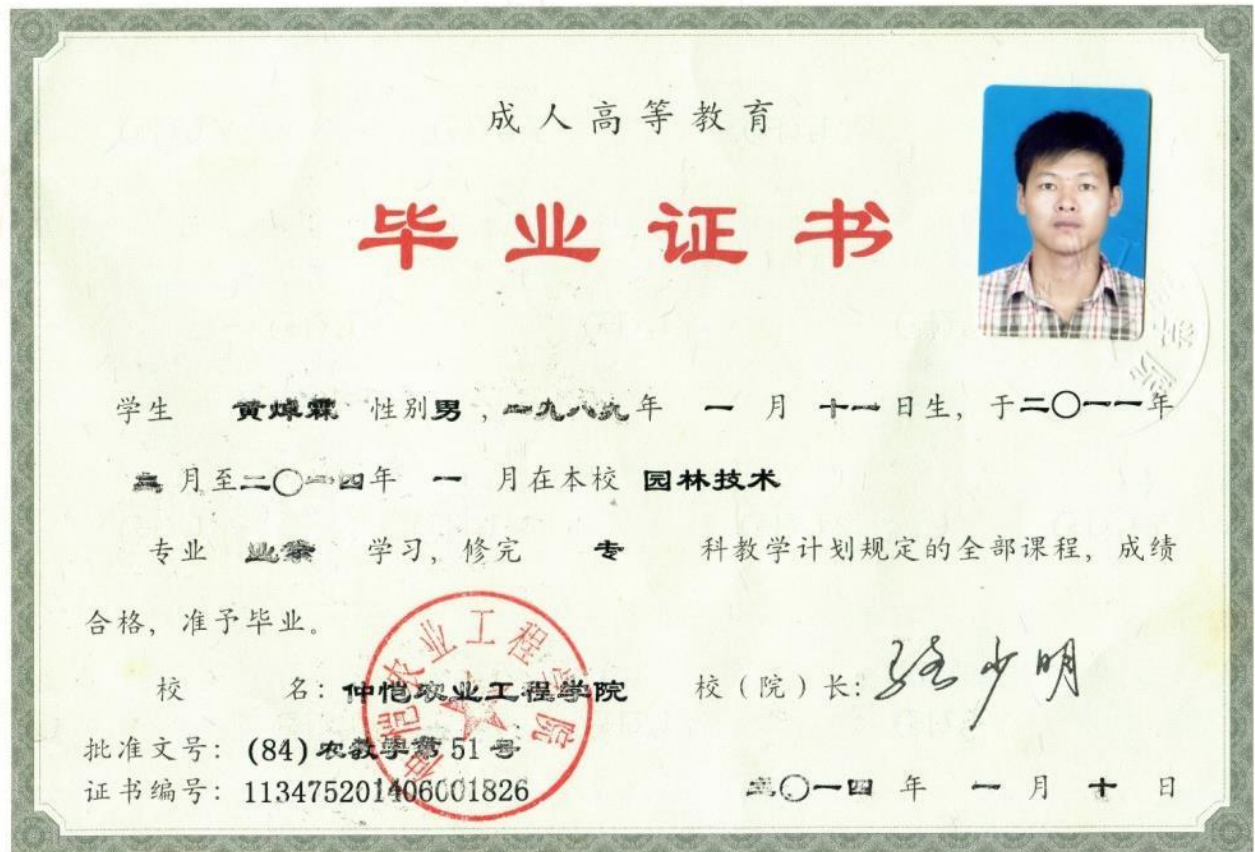 成人高等教育
毕业证书
学生 黄焯霖 性别男，一九八九年 一 月 十一 日生，于二〇一一年
月至二〇一四年 一 月在本校 园林技术
专业 业余 学习，修完 专 科教学计划规定的全部课程，成绩
合格，准予毕业。
校 名：仲恺农业工程学院 校（院）长：骆少明
仲恺农业工程学院
批准文号：(84)农教学第 51 号
证书编号：113475201406001826 二〇一四 年 一 月 十 日